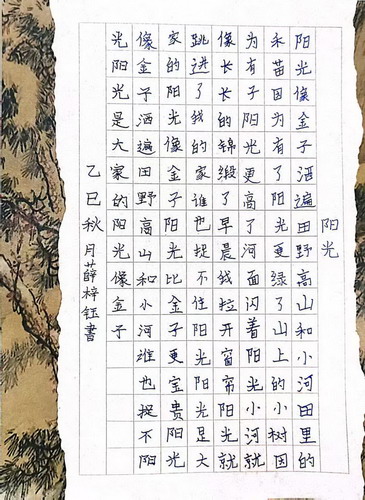 阳光
阳光像金子洒遍田野高山和小河田里的
禾苗因为有了阳光更绿了山上的小树因
为有了阳光更高了河面闪着阳光小河就
像长长的锦缎了早晨我拉开窗帘阳光就
跳进了我的家谁也捉不住阳光阳光是大
家的阳光像金子阳光比金子更宝贵阳光
像金子洒遍田野高山和小河谁也捉不阳
光阳光是大家的阳光像金子
乙巳秋月薛梓钰書